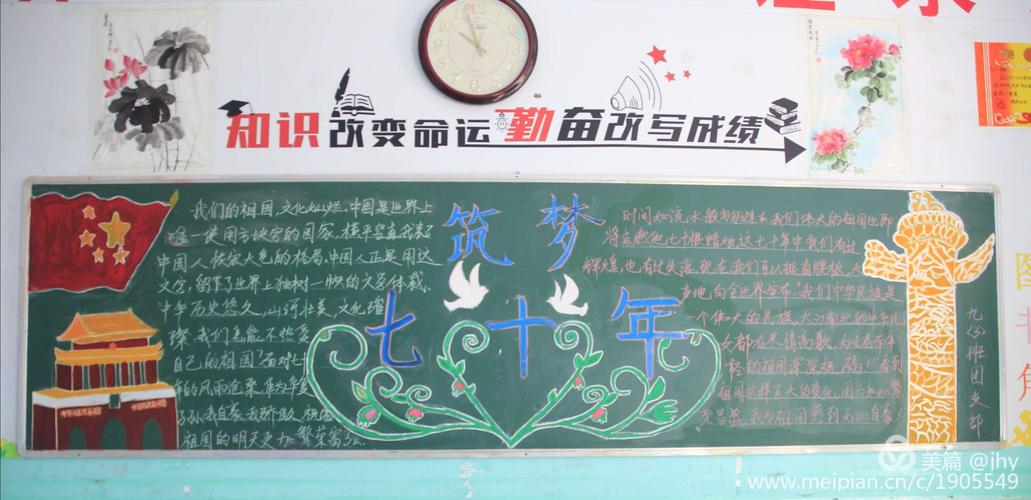 知识改变命运 勤奋改写成绩
我们的祖国,文化灿烂.中国是世界上
唯一使用方块字的国家,横平竖直我来了
中国人 恢宏大气的格局,中国人正是用这
文字,留下了世界上独树一帜的文学体裁,
中华历史悠久,山河壮美,文化璀
璨,我们怎能不热爱
自己的祖国?面对七十
年的风雨沧桑,作为华夏
子孙,我自豪,我骄傲,祝愿
祖国的明天更加繁荣富强.
筑梦
七十年
时间如流水般匆匆逝去,我们伟大的祖国也即
将去燃他七十根蜡烛,这七十年中我们有过
辉煌,也有过失落,现在,我们可以挺直腰板,大
声地向全世界宣布:我们中华民族是
一个伟大的民族,大江南北的中华儿
女都在尽情高歌,为七十百年
的祖国深深祝福!看到
祖国这样巨大的变化,因为如此繁
荣昌盛,我为祖国感到无比自豪!
九(3)班团支部
美篇 @jhy
www.meipian.cn/c/1905549